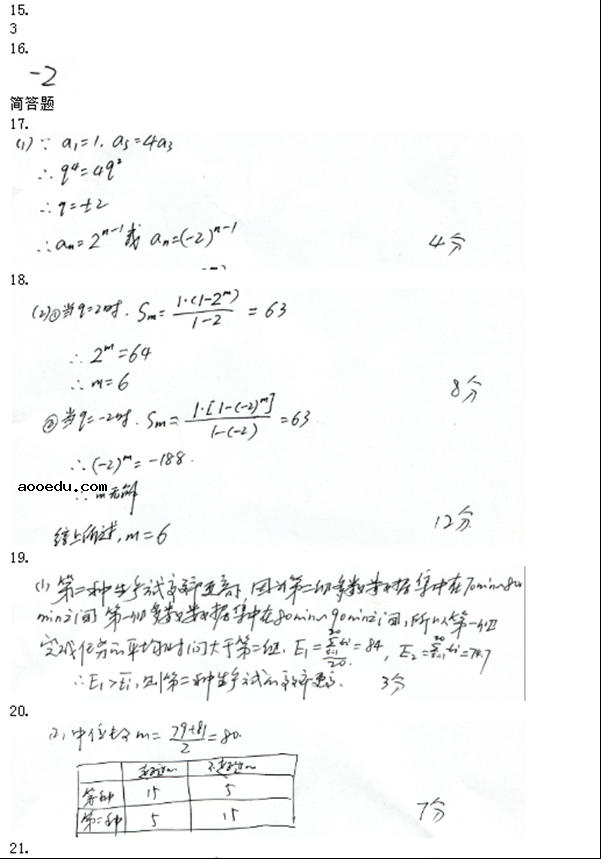 15.
3
16.
-2
简答题
17.
(1) ∵ a₁=1, a₅=4a₃
∴ q⁴=4q²
∴ q=±2
∴ aₙ=2ⁿ⁻¹ 或 aₙ=(-2)ⁿ⁻¹ 4分
18.
(2)①当q=2时. Sₘ= 1·(1-2ᵐ)/(1-2) = 63
∴ 2ᵐ=64
∴ m=6 8分
②当q=-2时. Sₘ= 1·[1-(-2)ᵐ]/(1-(-2)) =63
∴ (-2)ᵐ=-188.
aooedu.com
∴ m无解
综上所述, m=6 12分
19.
(1) 第二种生产方式效率更高, 因为第二组多数数据集中在70min~80
min之间 第一组多数数据集中在80min~90min之间, 所以第一组
完成任务的平均时间大于第二组. E₁= =84, E₂= =74.7
∴ E₁>E₂, 则第二种生产方式的效率更高. 3分
20.
(2) 中位数 m= (79+81)/2 =80.
超过m 不超过m
第一种 15 5
第二种 5 15 7分
21.